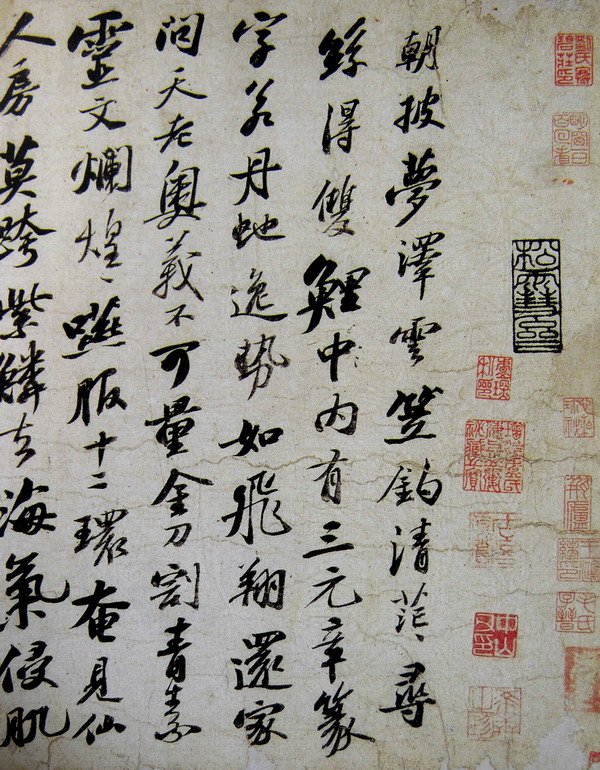 朝披夢澤雲笠釣清茫〻尋
絲得雙鯉中內有三元章篆
字若丹虵逸勢如飛翔還家
問天老奧義不可量金刀割青素
靈文爛煌〻嚥服十二環奄見仙
人房莫跨紫鱗去海氣侵肌